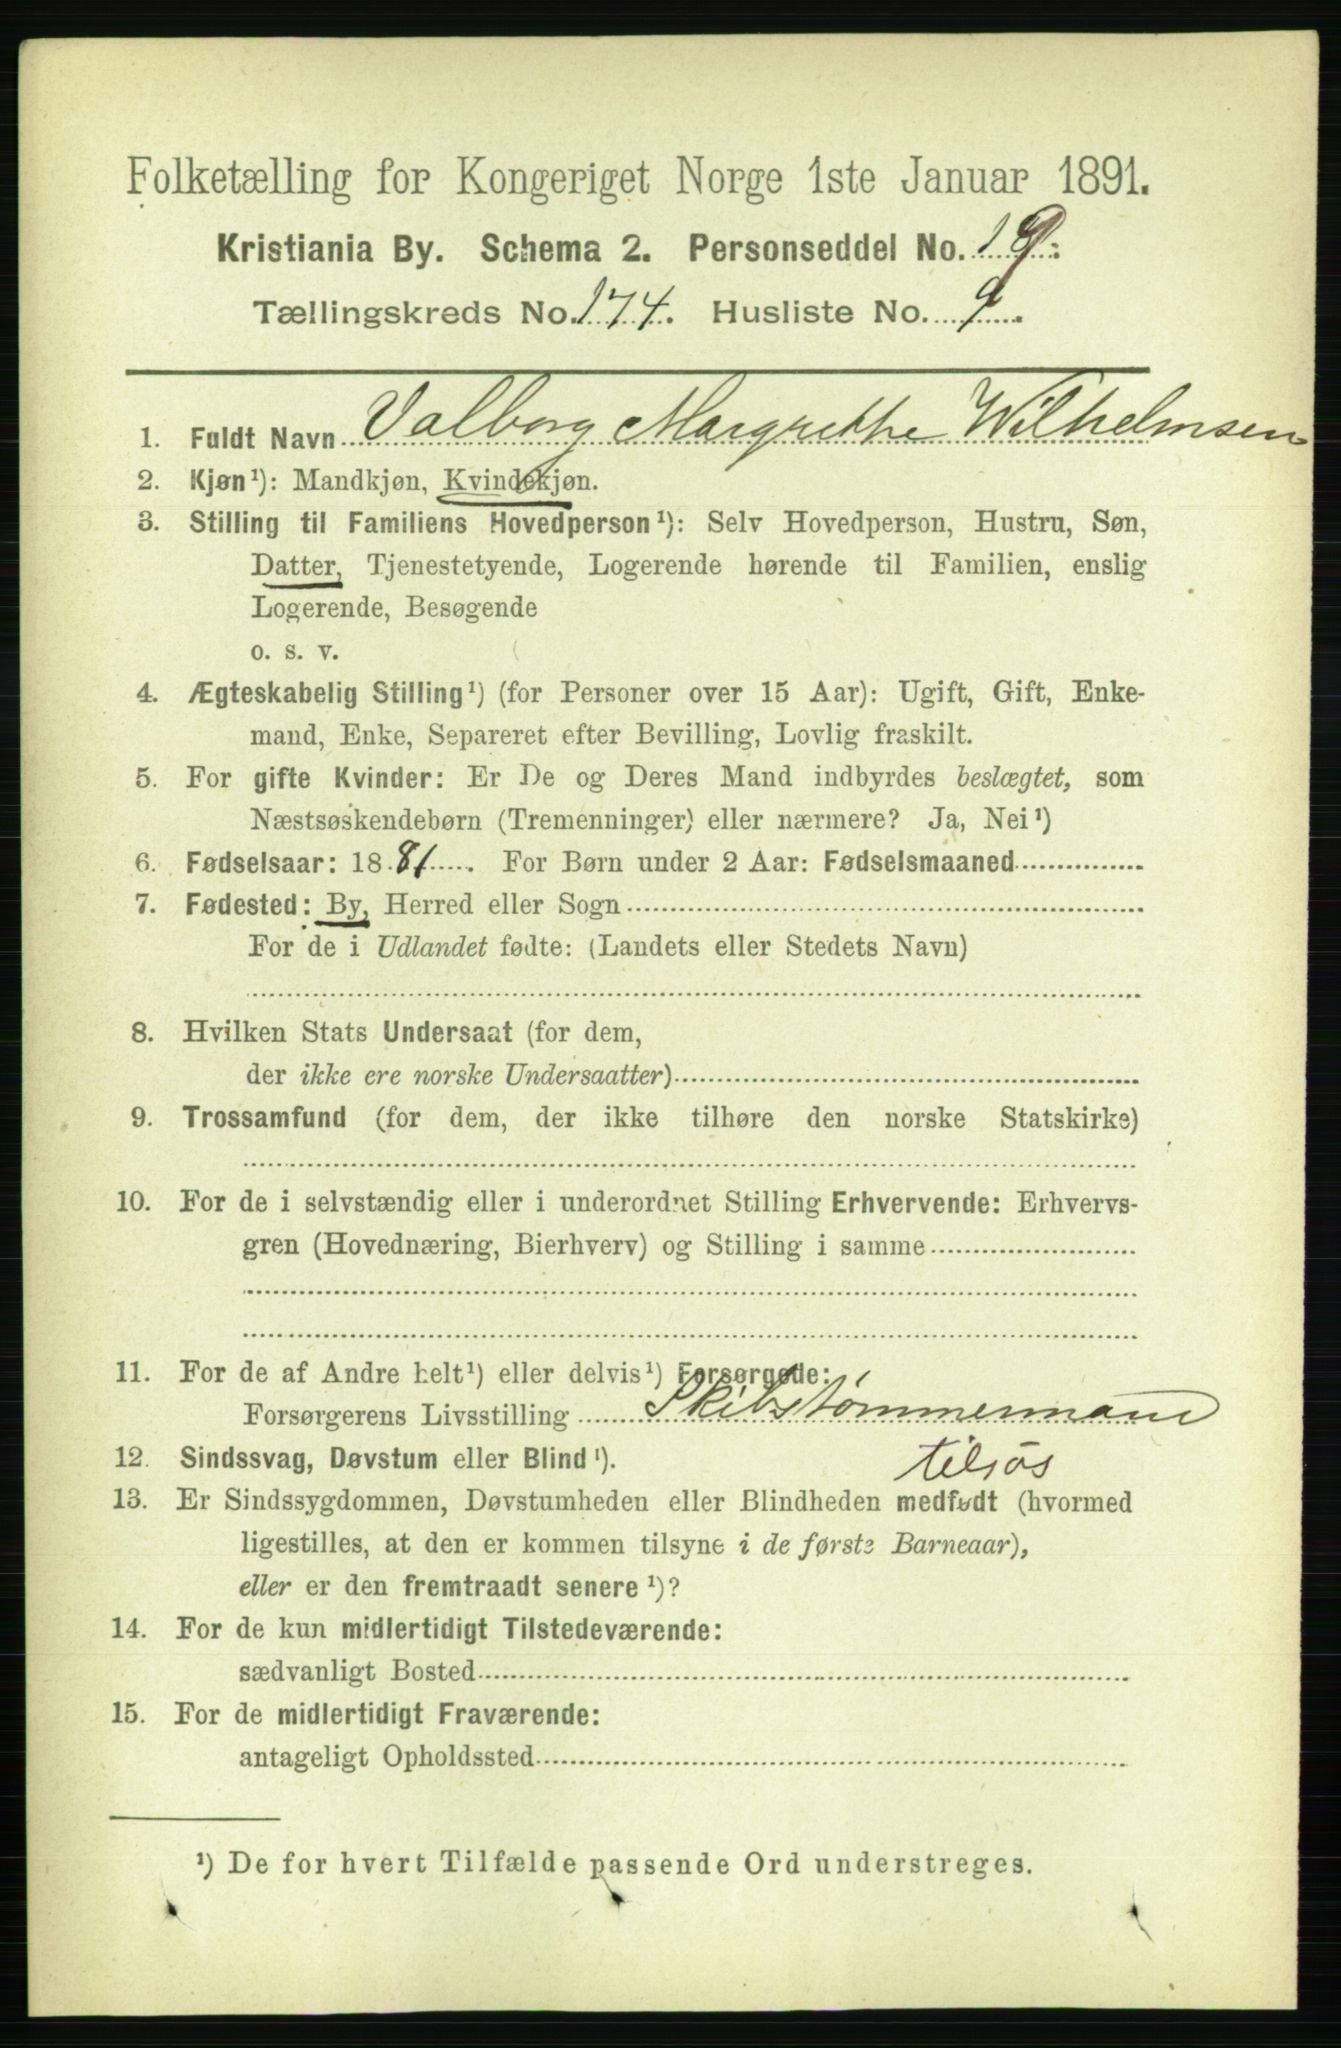 Folketælling for Kongeriget Norge 1ste Januar 1891.
Kristiania By. Schema 2. Personseddel No. 19.
Tællingskreds No. 174. Husliste No. 9.
1. Fuldt Navn Valborg Margrethe Wilhelmsen
2. Kjøn¹): Mandkjøn, Kvindekjøn.
3. Stilling til Familiens Hovedperson¹): Selv Hovedperson, Hustru, Søn,
Datter, Tjenestetyende, Logerende hørende til Familien, enslig
Logerende, Besøgende
o. s. v.
4. Ægteskabelig Stilling¹) (for Personer over 15 Aar): Ugift, Gift, Enke-
mand, Enke, Separeret efter Bevilling, Lovlig fraskilt.
5. For gifte Kvinder: Er De og Deres Mand indbyrdes beslægtet, som
Næstsøskendebørn (Tremenninger) eller nærmere? Ja, Nei¹)
6. Fødselsaar: 1881. For Børn under 2 Aar: Fødselsmaaned
7. Fødested: By, Herred eller Sogn
For de i Udlandet fødte: (Landets eller Stedets Navn)
8. Hvilken Stats Undersaat (for dem,
der ikke ere norske Undersaatter)
9. Trossamfund (for dem, der ikke tilhøre den norske Statskirke)
10. For de i selvstændig eller i underordnet Stilling Erhvervende: Erhvervs-
gren (Hovednæring, Bierhverv) og Stilling i samme
11. For de af Andre helt¹) eller delvis¹) Forsørgede:
Forsørgerens Livsstilling Skibstømmermand
12. Sindssvag, Døvstum eller Blind¹). tilsøs
13. Er Sindssygdommen, Døvstumheden eller Blindheden medfødt (hvormed
ligestilles, at den er kommen tilsyne i de første Barneaar),
eller er den fremtraadt senere¹)?
14. For de kun midlertidigt Tilstedeværende:
sædvanligt Bosted
15. For de midlertidigt Fraværende:
antageligt Opholdssted
¹) De for hvert Tilfælde passende Ord understreges.